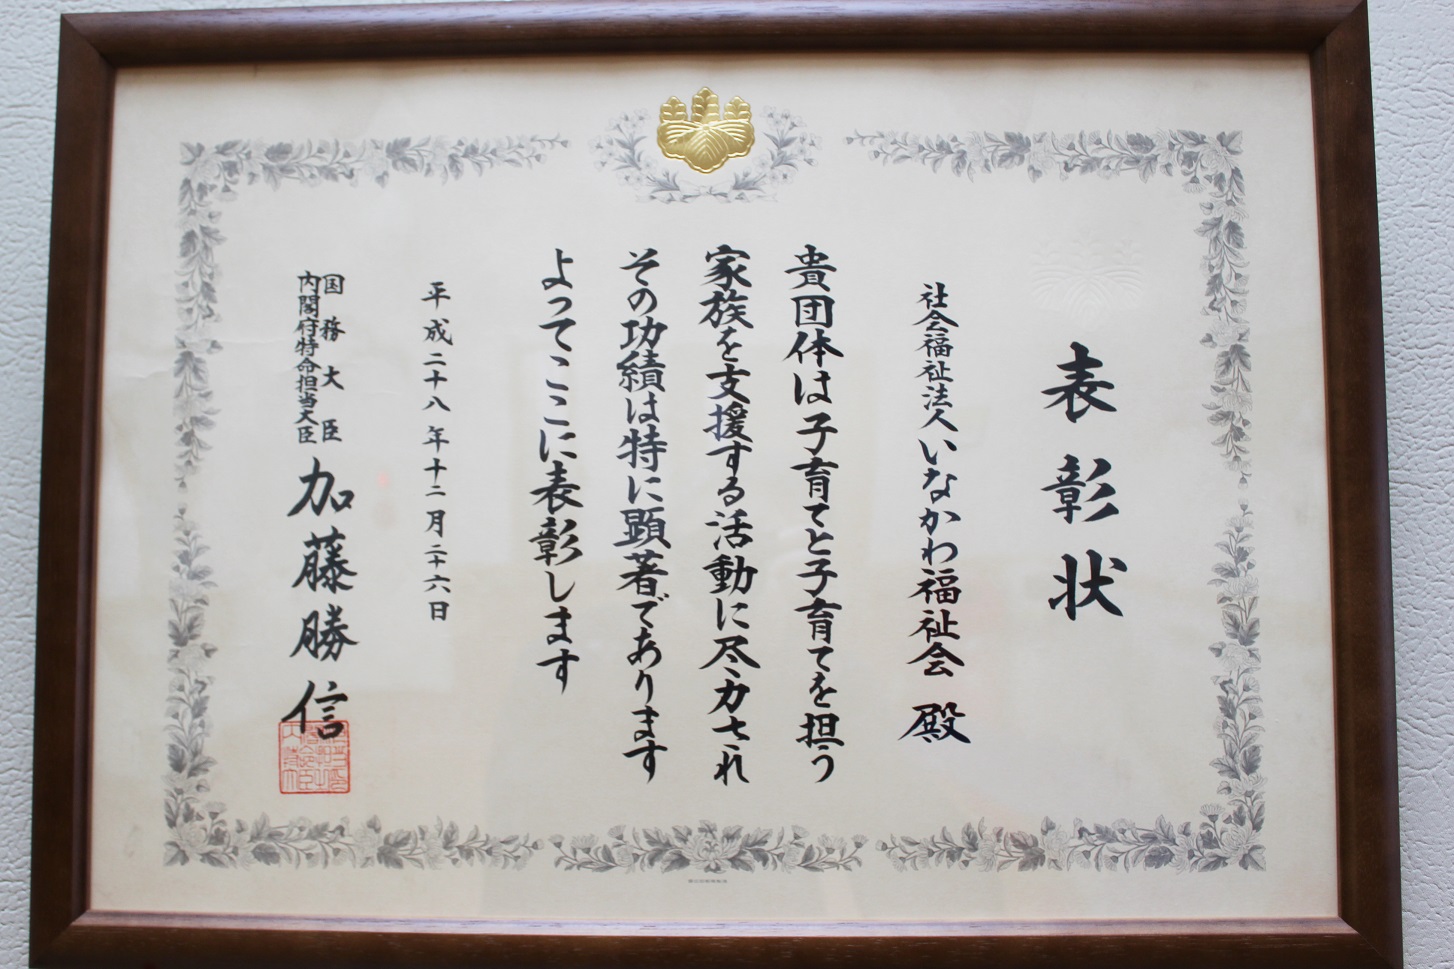 表彰状
社会福祉法人いなかわ福祉会 殿
貴団体は子育てと子育てを担う
家族を支援する活動に尽力され
その功績は特に顕著であります
よってここに表彰します
平成二十八年十二月二十六日
国務大臣
内閣府特命担当大臣
加藤勝信